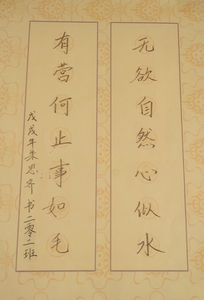 无欲自然心似水
有营何止事如毛
戊戌年朱思齐书二零二班